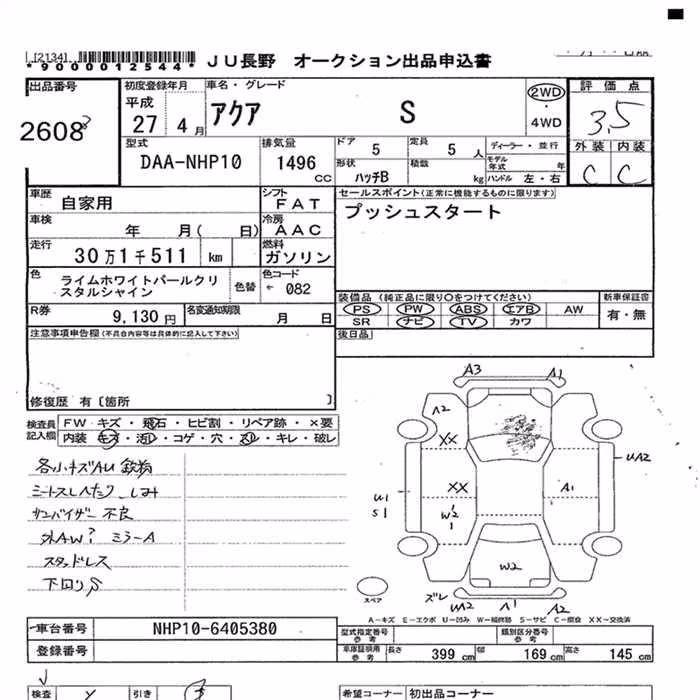 [2134]
*9000012544*
JU長野 オークション出品申込書
出品番号 初度登録年月 車名・グレード 評価点
2608
平成
27 4月
アクア S
2WD
・
4WD
3.5
外装 内装
C C
型式 排気量 ドア 5 定員 5 人 ディーラー・並行
DAA-NHP10 1496 CC
形状 ハッチB 積載 kg モデル年式 年
ハンドル 左・右
車歴 自家用 シフト FAT
セールスポイント(正常に機能するものに限ります)
プッシュスタート
車検 年 月( 日) 冷房 AAC
走行 30万1千511 km 燃料 ガソリン
色 ライムホワイトパールクリスタルシャイン 色替 色コード ← 082
R券 9,130円 名変通知期限 月 日
装備品 (純正品に限り○をつけてください) 新車保証書
PS PW ABS エアB AW 有・無
SR ナビ TV カワ
注意事項申告欄(不具合内容等は具体的に記入して下さい) 後日品
修復歴 有〔箇所 〕
検査員記入欄 FW キズ・飛石・ヒビ割・リペア跡・×要
内装 キズ・汚れ・コゲ・穴・スレ・キレ・破レ
各小キズAU 鉄補
シートスレへたり しみ
サンバイザー 不良
外AW? ミラーA
スタッドレス
下回りS
A3 A1
A2
XX
UA2
XX A1
U1
S1
W2
1
W2
スペア
ズレ UA2 A1 A2
A-キズ E-エクボ U-凹み W-補修跡 S-サビ C-腐食 XX-交換済
車台番号 NHP10-6405380
登録番号
型式指定番号 参考 類別区分番号 参考
車庫証明用 参考 長さ 399 cm 幅 169 cm 高さ 145 cm
検査 引き 希望コーナー 初出品コーナー